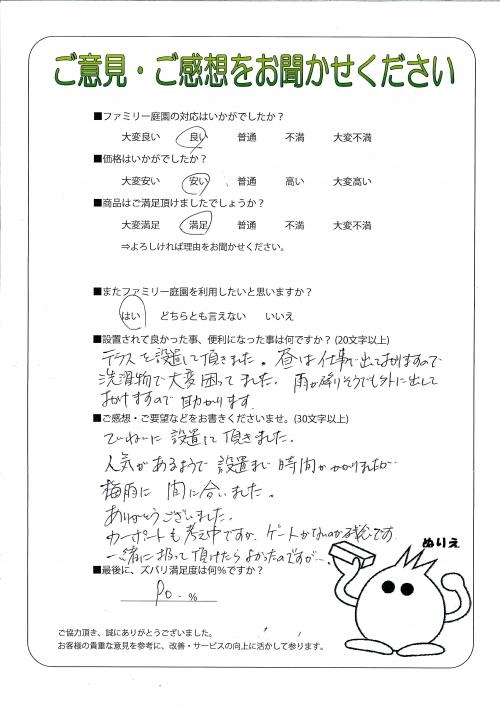 ご意見・ご感想をお聞かせください
■ファミリー庭園の対応はいかがでしたか？
大変良い 良い 普通 不満 大変不満
■価格はいかがでしたか？
大変安い 安い 普通 高い 大変高い
■商品はご満足頂けましたでしょうか？
大変満足 満足 普通 不満 大変不満
⇒よろしければ理由をお聞かせください。
■またファミリー庭園を利用したいと思いますか？
はい どちらとも言えない いいえ
■設置されて良かった事、便利になった事は何ですか？(20文字以上)
テラスを設置して頂きました。昼は仕事で出ておりますので
洗濯物で大変困ってました。雨が降りそうでも外に出して
おけますので助かります
■ご感想・ご要望などをお書きくださいませ。(30文字以上)
ていねいに設置して頂きました。
人気があるようで設置まで時間がかかりましたが…
梅雨に間に合いました。
ありがとうございました。
カーポートも考え中ですが、ゲートがないのが残念です
一緒に扱って頂けたらよかったのですが…。
ぬりえ
■最後に、ズバリ満足度は何％ですか？
80 %
ご協力頂き、誠にありがとうございました。
お客様の貴重な意見を参考に、改善・サービスの向上に活かして参ります。